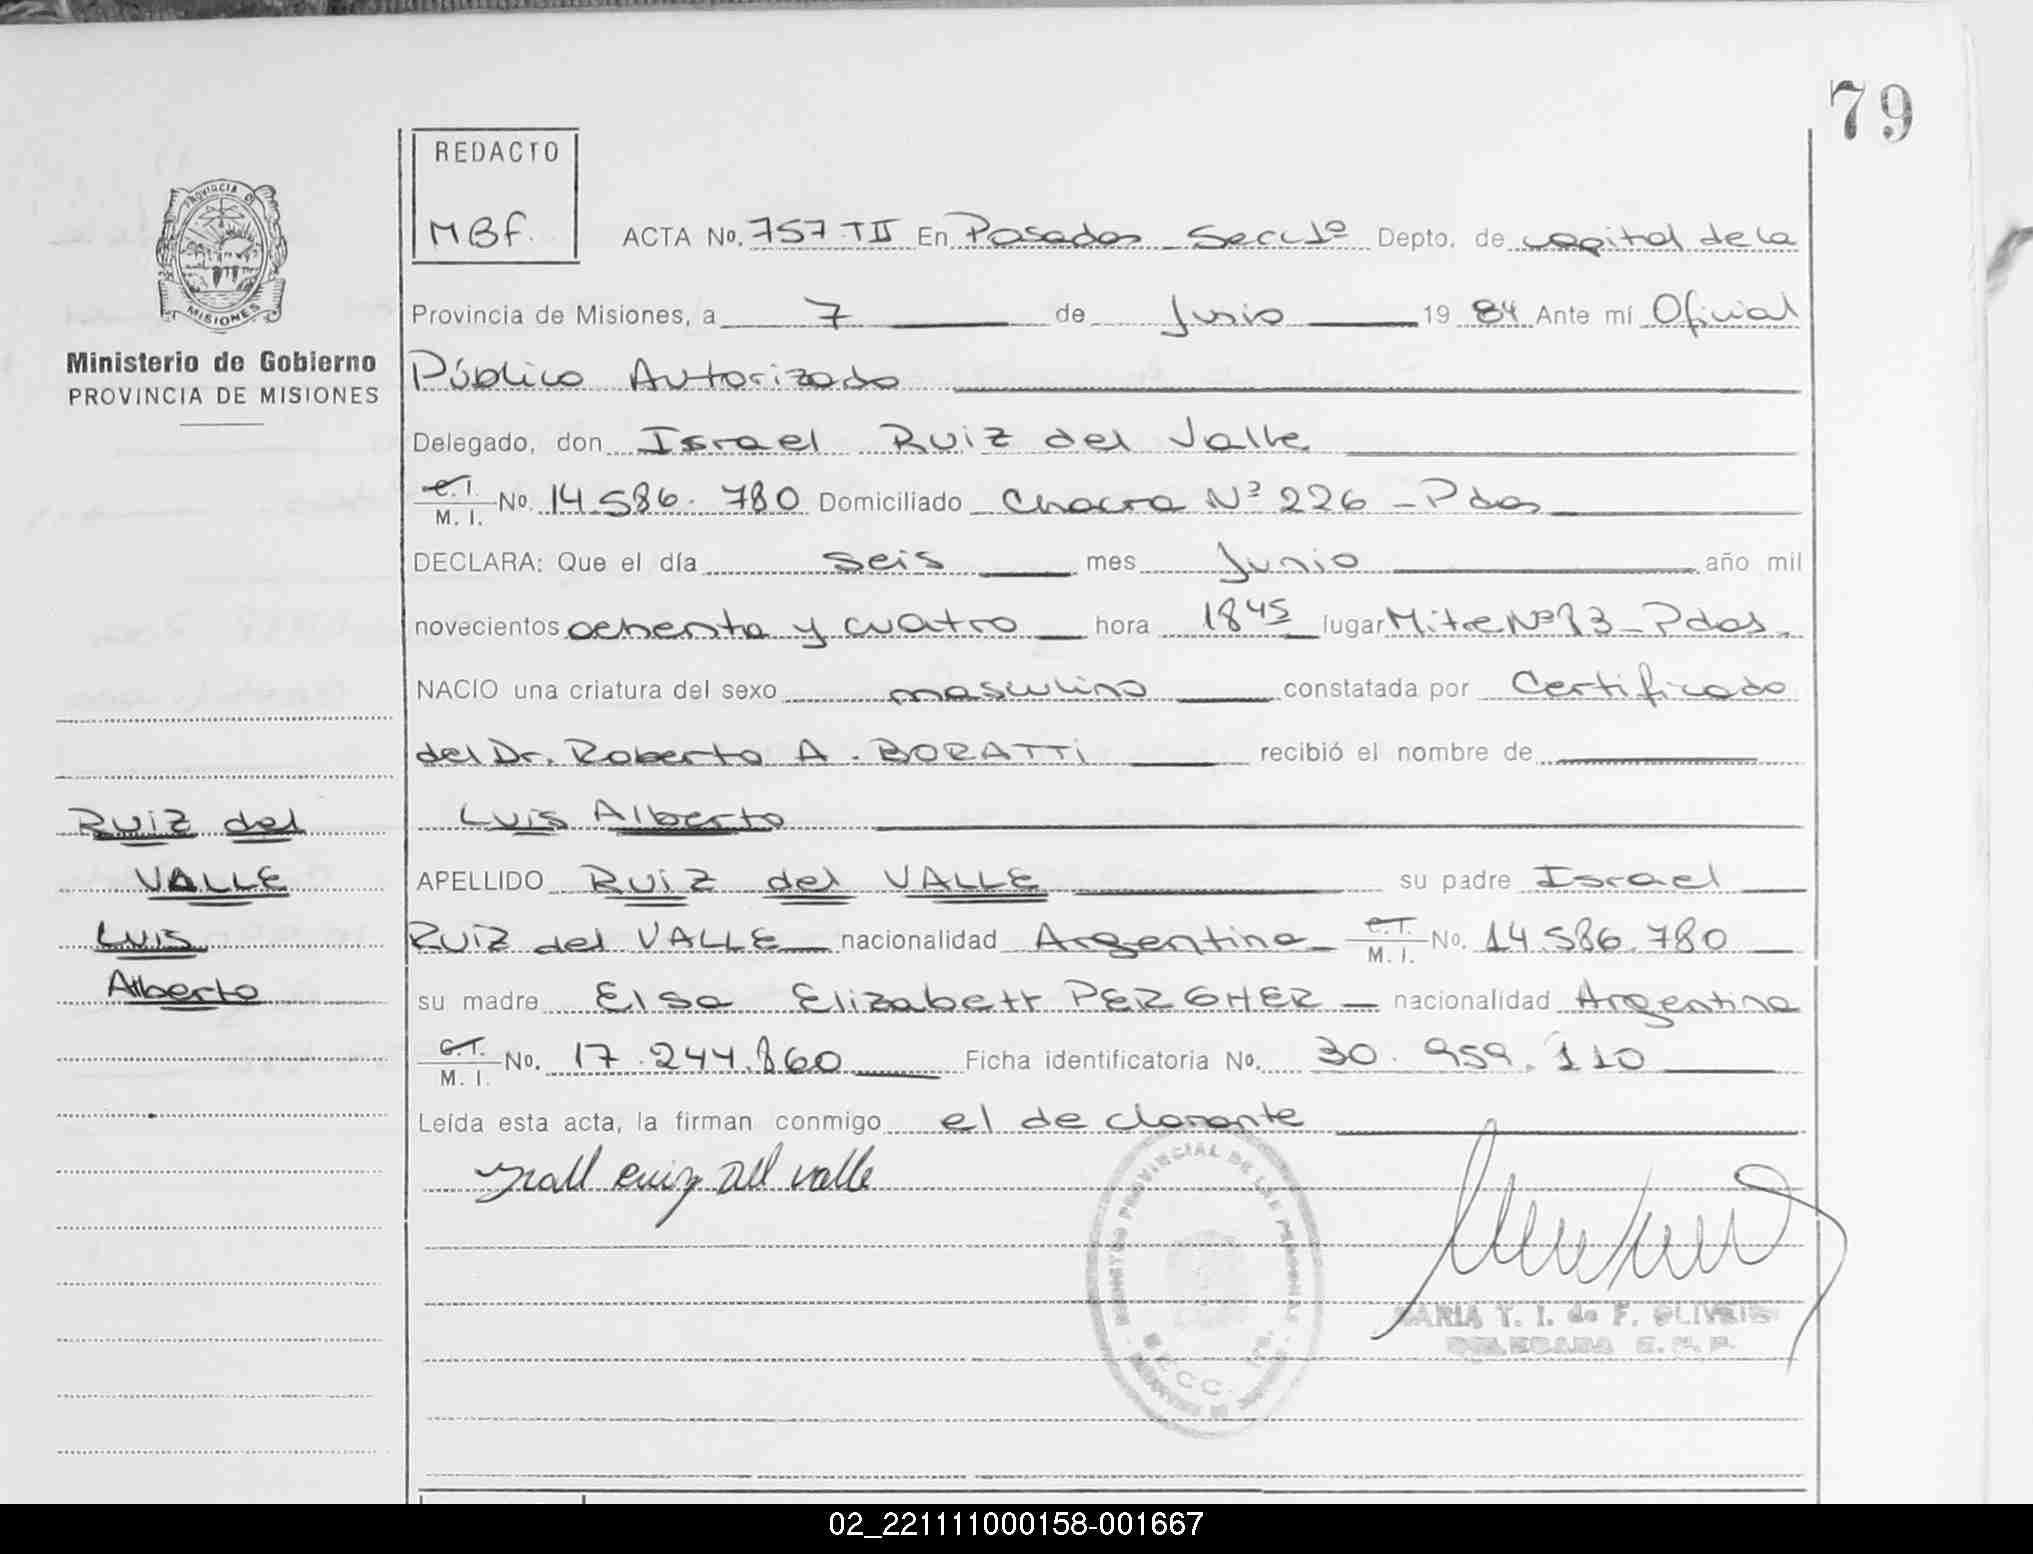 79
REDACTO
MBf.
PROVINCIA DE
MISIONES
Ministerio de Gobierno
PROVINCIA DE MISIONES
ACTA No. 757 TII En Posadas Secc 1º Depto. de capital de la
Provincia de Misiones, a 7 de Junio 19 84 Ante mí Oficial
Público Autorizado
Delegado, don Israel Ruiz del Valle
C.I. M. I. No. 14.586.780 Domiciliado Chacra Nº 226 - Pdas
DECLARA: Que el día seis mes Junio año mil
novecientos ochenta y cuatro hora 18 45 lugar Mitre Nº 83 - Pdas.
NACIO una criatura del sexo masculino constatada por Certificado
del Dr. Roberto A. BORATTi recibió el nombre de
Luis Alberto
APELLIDO Ruiz del VALLE su padre Israel
Ruiz del VALLE nacionalidad Argentina C.I. M. I. No. 14.586.780
su madre Elsa Elizabett PERGHER nacionalidad Argentina
C.I. M. I. No. 17.244.860 Ficha identificatoria No. 30.959.110
Leída esta acta, la firman conmigo el declarante
Ruiz del
VALLE
Luis
Alberto
Ruiz Del valle
PROVINCIAL DE LAS PERSONAS
MARIA T. I. de F.
DELEGADA
02_221111000158-001667